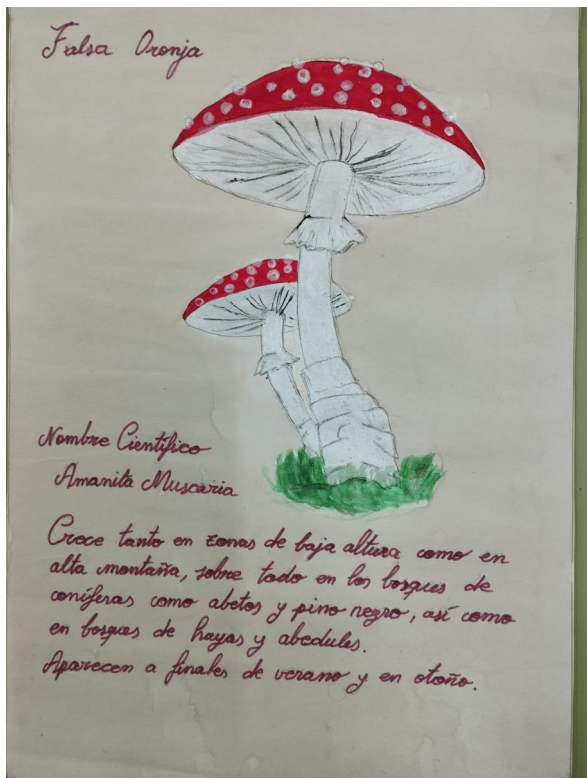 Falsa Oronja
Nombre Científico
Amanita Muscaria
Crece tanto en zonas de baja altura como en
alta montaña, sobre todo en los bosques de
coníferas como abetos y pino negro, así como
en bosques de hayas y abedules.
Aparecen a finales de verano y en otoño.